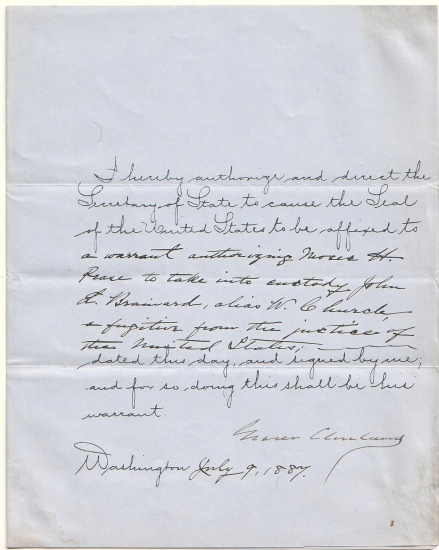 I hereby authorize and direct the
Secretary of State to cause the Seal
of the United States to be affixed to
a warrant authorizing Moses H.
Pease to take into custody John
L. Brainard, alias W. Church,
a fugitive from the justice of
the United States;
dated this day, and signed by me;
and for so doing this shall be his
warrant.
Grover Cleveland
Washington July 9, 1887.